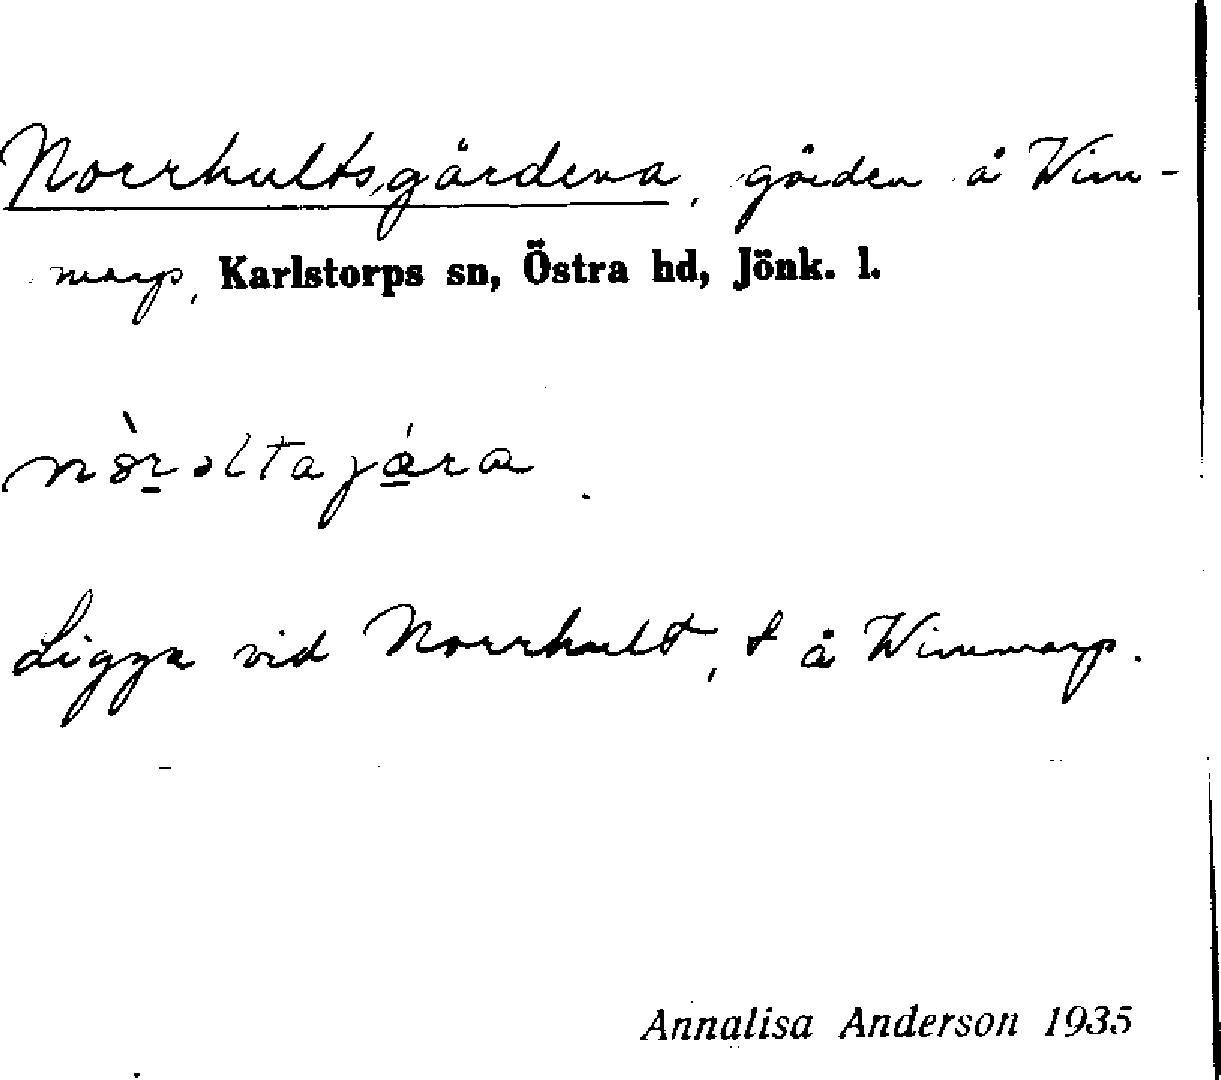 Norrhultsgärdena, gärden å Wim-
marp, Karlstorps sn, Östra hd, Jönk. l.
Ligga vid Norrhult, t å Wimmarp.
Annalisa Anderson 1935